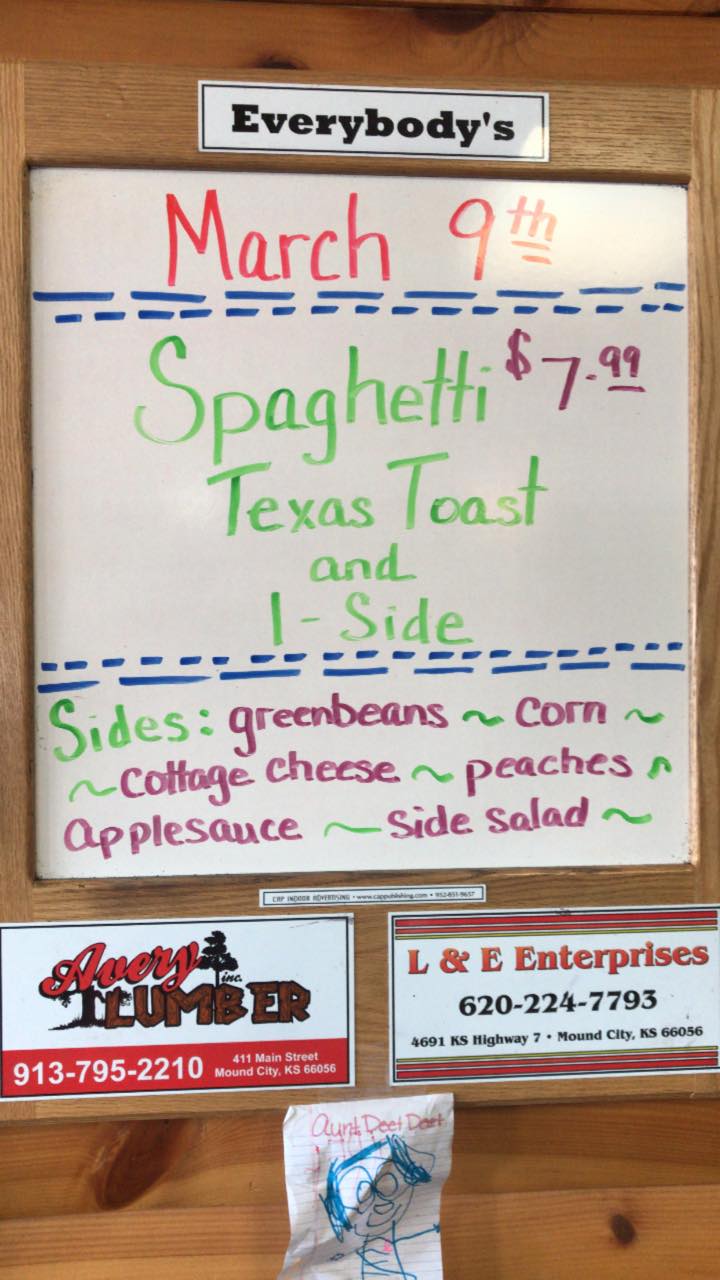 Everybody's
March 9th
Spaghetti $7.99
Texas Toast
and
1-Side
Sides: greenbeans ~ Corn ~
~ Cottage Cheese ~ peaches ~
applesauce ~ side salad ~
CAP INDOOR ADVERTISING • www.cappublishing.com • 952-851-9657
Avery inc.
LUMBER
913-795-2210
411 Main Street
Mound City, KS 66056
L & E Enterprises
620-224-7793
4691 KS Highway 7 • Mound City, KS 66056
Aunt Deet Deet